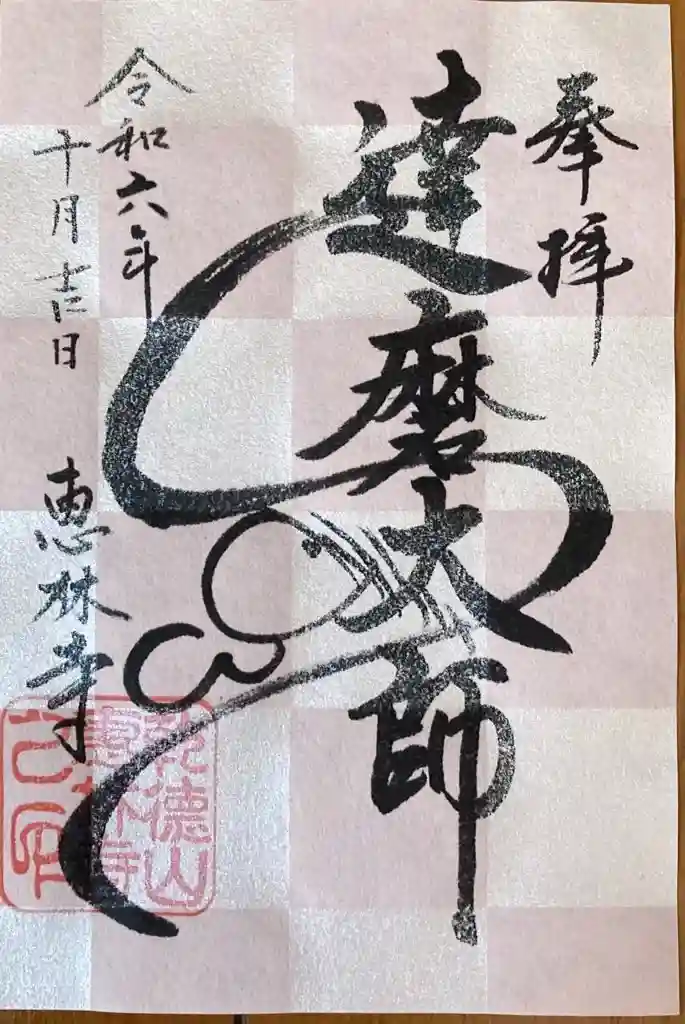 奉拝
達磨大師
令和六年
十月吉日
恵林寺
乾徳山
恵林寺
之印